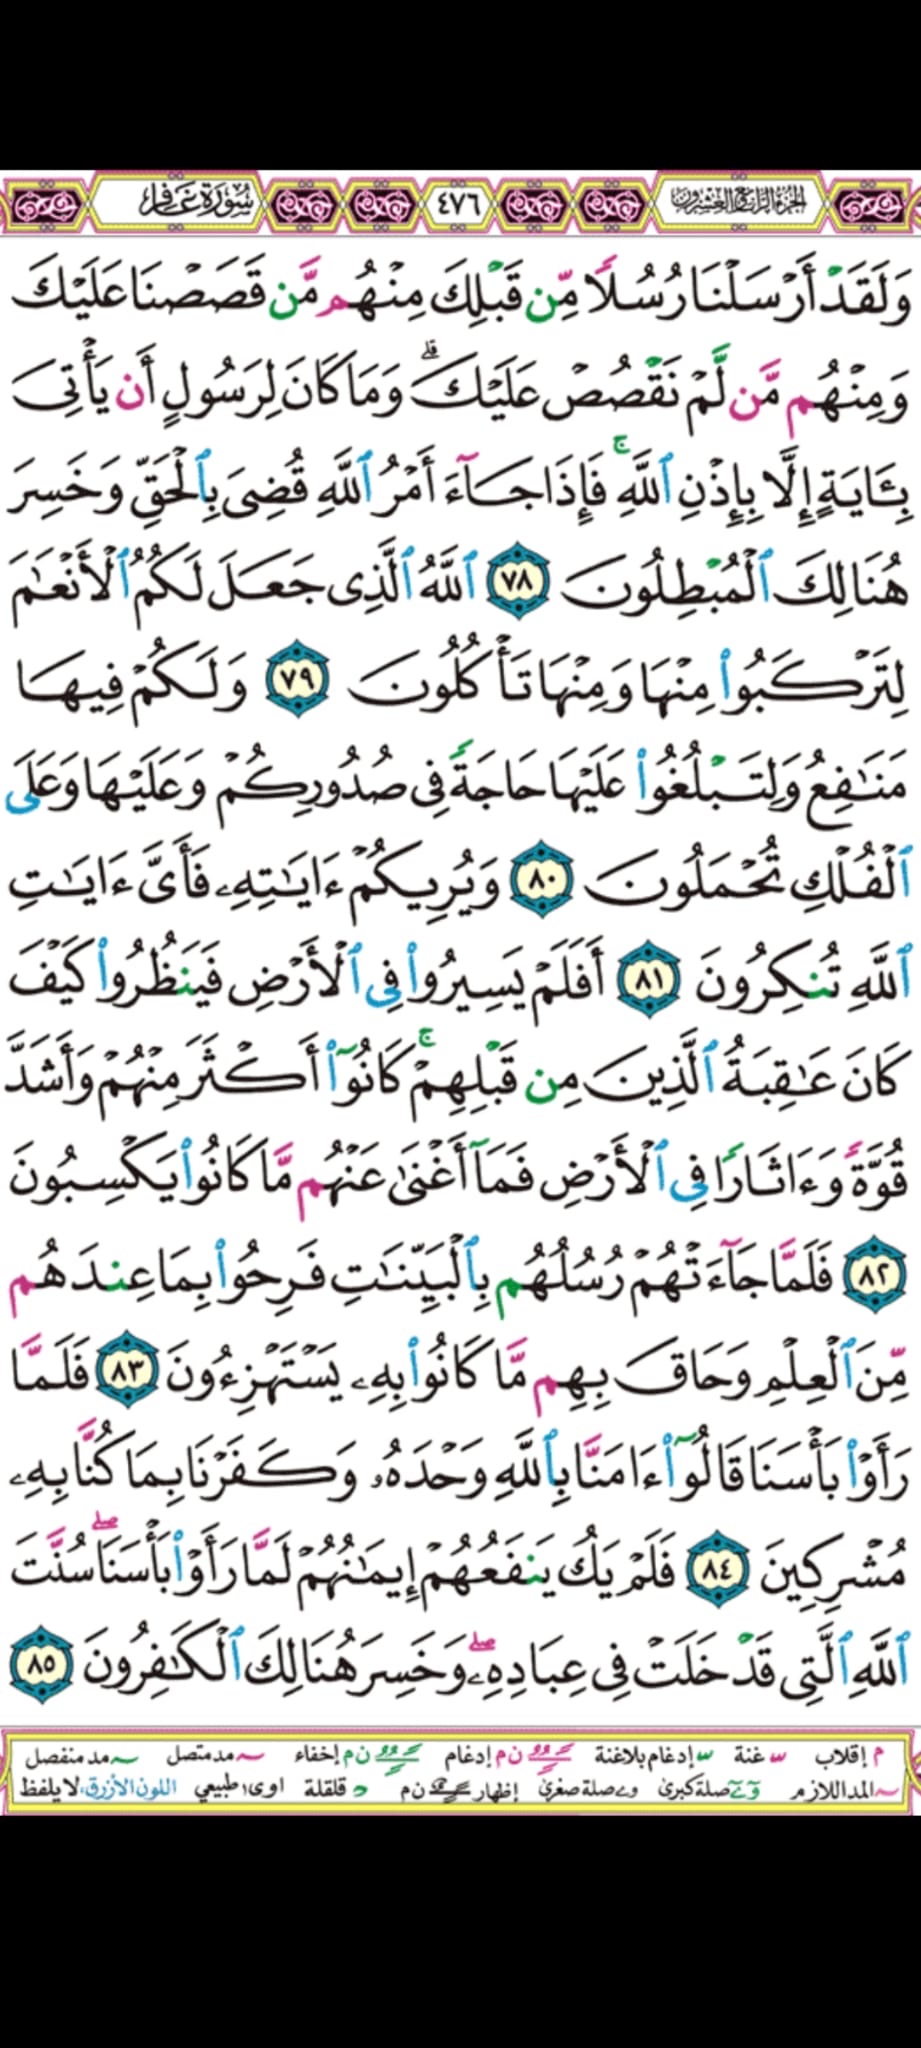 الجزء الرابع والعشرون ٤٧٦ سورة غافر
وَلَقَدۡ أَرۡسَلۡنَا رُسُلٗا مِّن قَبۡلِكَ مِنۡهُم مَّن قَصَصۡنَا عَلَيۡكَ
وَمِنۡهُم مَّن لَّمۡ نَقۡصُصۡ عَلَيۡكَۗ وَمَا كَانَ لِرَسُولٍ أَن يَأۡتِيَ
بِـَٔايَةٍ إِلَّا بِإِذۡنِ ٱللَّهِۚ فَإِذَا جَآءَ أَمۡرُ ٱللَّهِ قُضِيَ بِٱلۡحَقِّ وَخَسِرَ
هُنَالِكَ ٱلۡمُبۡطِلُونَ ٧٨ ٱللَّهُ ٱلَّذِي جَعَلَ لَكُمُ ٱلۡأَنۡعَٰمَ
لِتَرۡكَبُواْ مِنۡهَا وَمِنۡهَا تَأۡكُلُونَ ٧٩ وَلَكُمۡ فِيهَا
مَنَٰفِعُ وَلِتَبۡلُغُواْ عَلَيۡهَا حَاجَةٗ فِي صُدُورِكُمۡ وَعَلَيۡهَا وَعَلَى
ٱلۡفُلۡكِ تُحۡمَلُونَ ٨٠ وَيُرِيكُمۡ ءَايَٰتِهِۦ فَأَيَّ ءَايَٰتِ
ٱللَّهِ تُنكِرُونَ ٨١ أَفَلَمۡ يَسِيرُواْ فِي ٱلۡأَرۡضِ فَيَنظُرُواْ كَيۡفَ
كَانَ عَٰقِبَةُ ٱلَّذِينَ مِن قَبۡلِهِمۡۚ كَانُوٓاْ أَكۡثَرَ مِنۡهُمۡ وَأَشَدَّ
قُوَّةٗ وَءَاثَارٗا فِي ٱلۡأَرۡضِ فَمَآ أَغۡنَىٰ عَنۡهُم مَّا كَانُواْ يَكۡسِبُونَ
٨٢ فَلَمَّا جَآءَتۡهُمۡ رُسُلُهُم بِٱلۡبَيِّنَٰتِ فَرِحُواْ بِمَا عِندَهُم
مِّنَ ٱلۡعِلۡمِ وَحَاقَ بِهِم مَّا كَانُواْ بِهِۦ يَسۡتَهۡزِءُونَ ٨٣ فَلَمَّا
رَأَوۡاْ بَأۡسَنَا قَالُوٓاْ ءَامَنَّا بِٱللَّهِ وَحۡدَهُۥ وَكَفَرۡنَا بِمَا كُنَّا بِهِۦ
مُشۡرِكِينَ ٨٤ فَلَمۡ يَكُ يَنفَعُهُمۡ إِيمَٰنُهُمۡ لَمَّا رَأَوۡاْ بَأۡسَنَاۖ سُنَّتَ
ٱللَّهِ ٱلَّتِي قَدۡ خَلَتۡ فِي عِبَادِهِۦۖ وَخَسِرَ هُنَالِكَ ٱلۡكَٰفِرُونَ ٨٥
م إقلاب س غنة س إدغام بلاغنة ن م إدغام ن م إخفاء مد متصل مد منفصل
المد اللازم صلة كبرى و ے صلة صغرى إظهار ن م د قلقلة ا و ى طبيعي اللون الأزرق، لا يلفظ